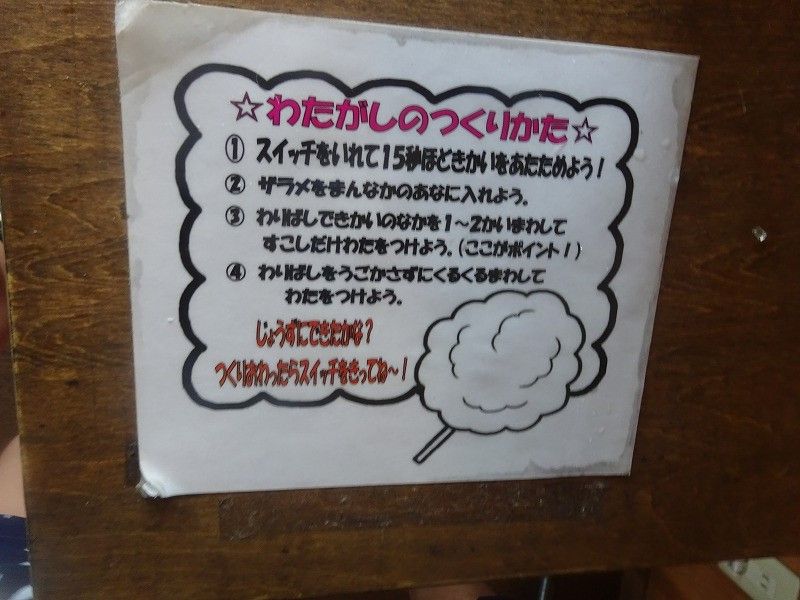 ☆わたがしのつくりかた☆
① スイッチをいれて15秒ほどきかいをあたためよう!
② ザラメをまんなかのあなに入れよう。
③ わりばしできかいのなかを1~2かいまわして
すこしだけわたをつけよう。(ここがポイント!)
④ わりばしをうごかさずにくるくるまわして
わたをつけよう。
じょうずにできたかな?
つくりおわったらスイッチをきってね~!